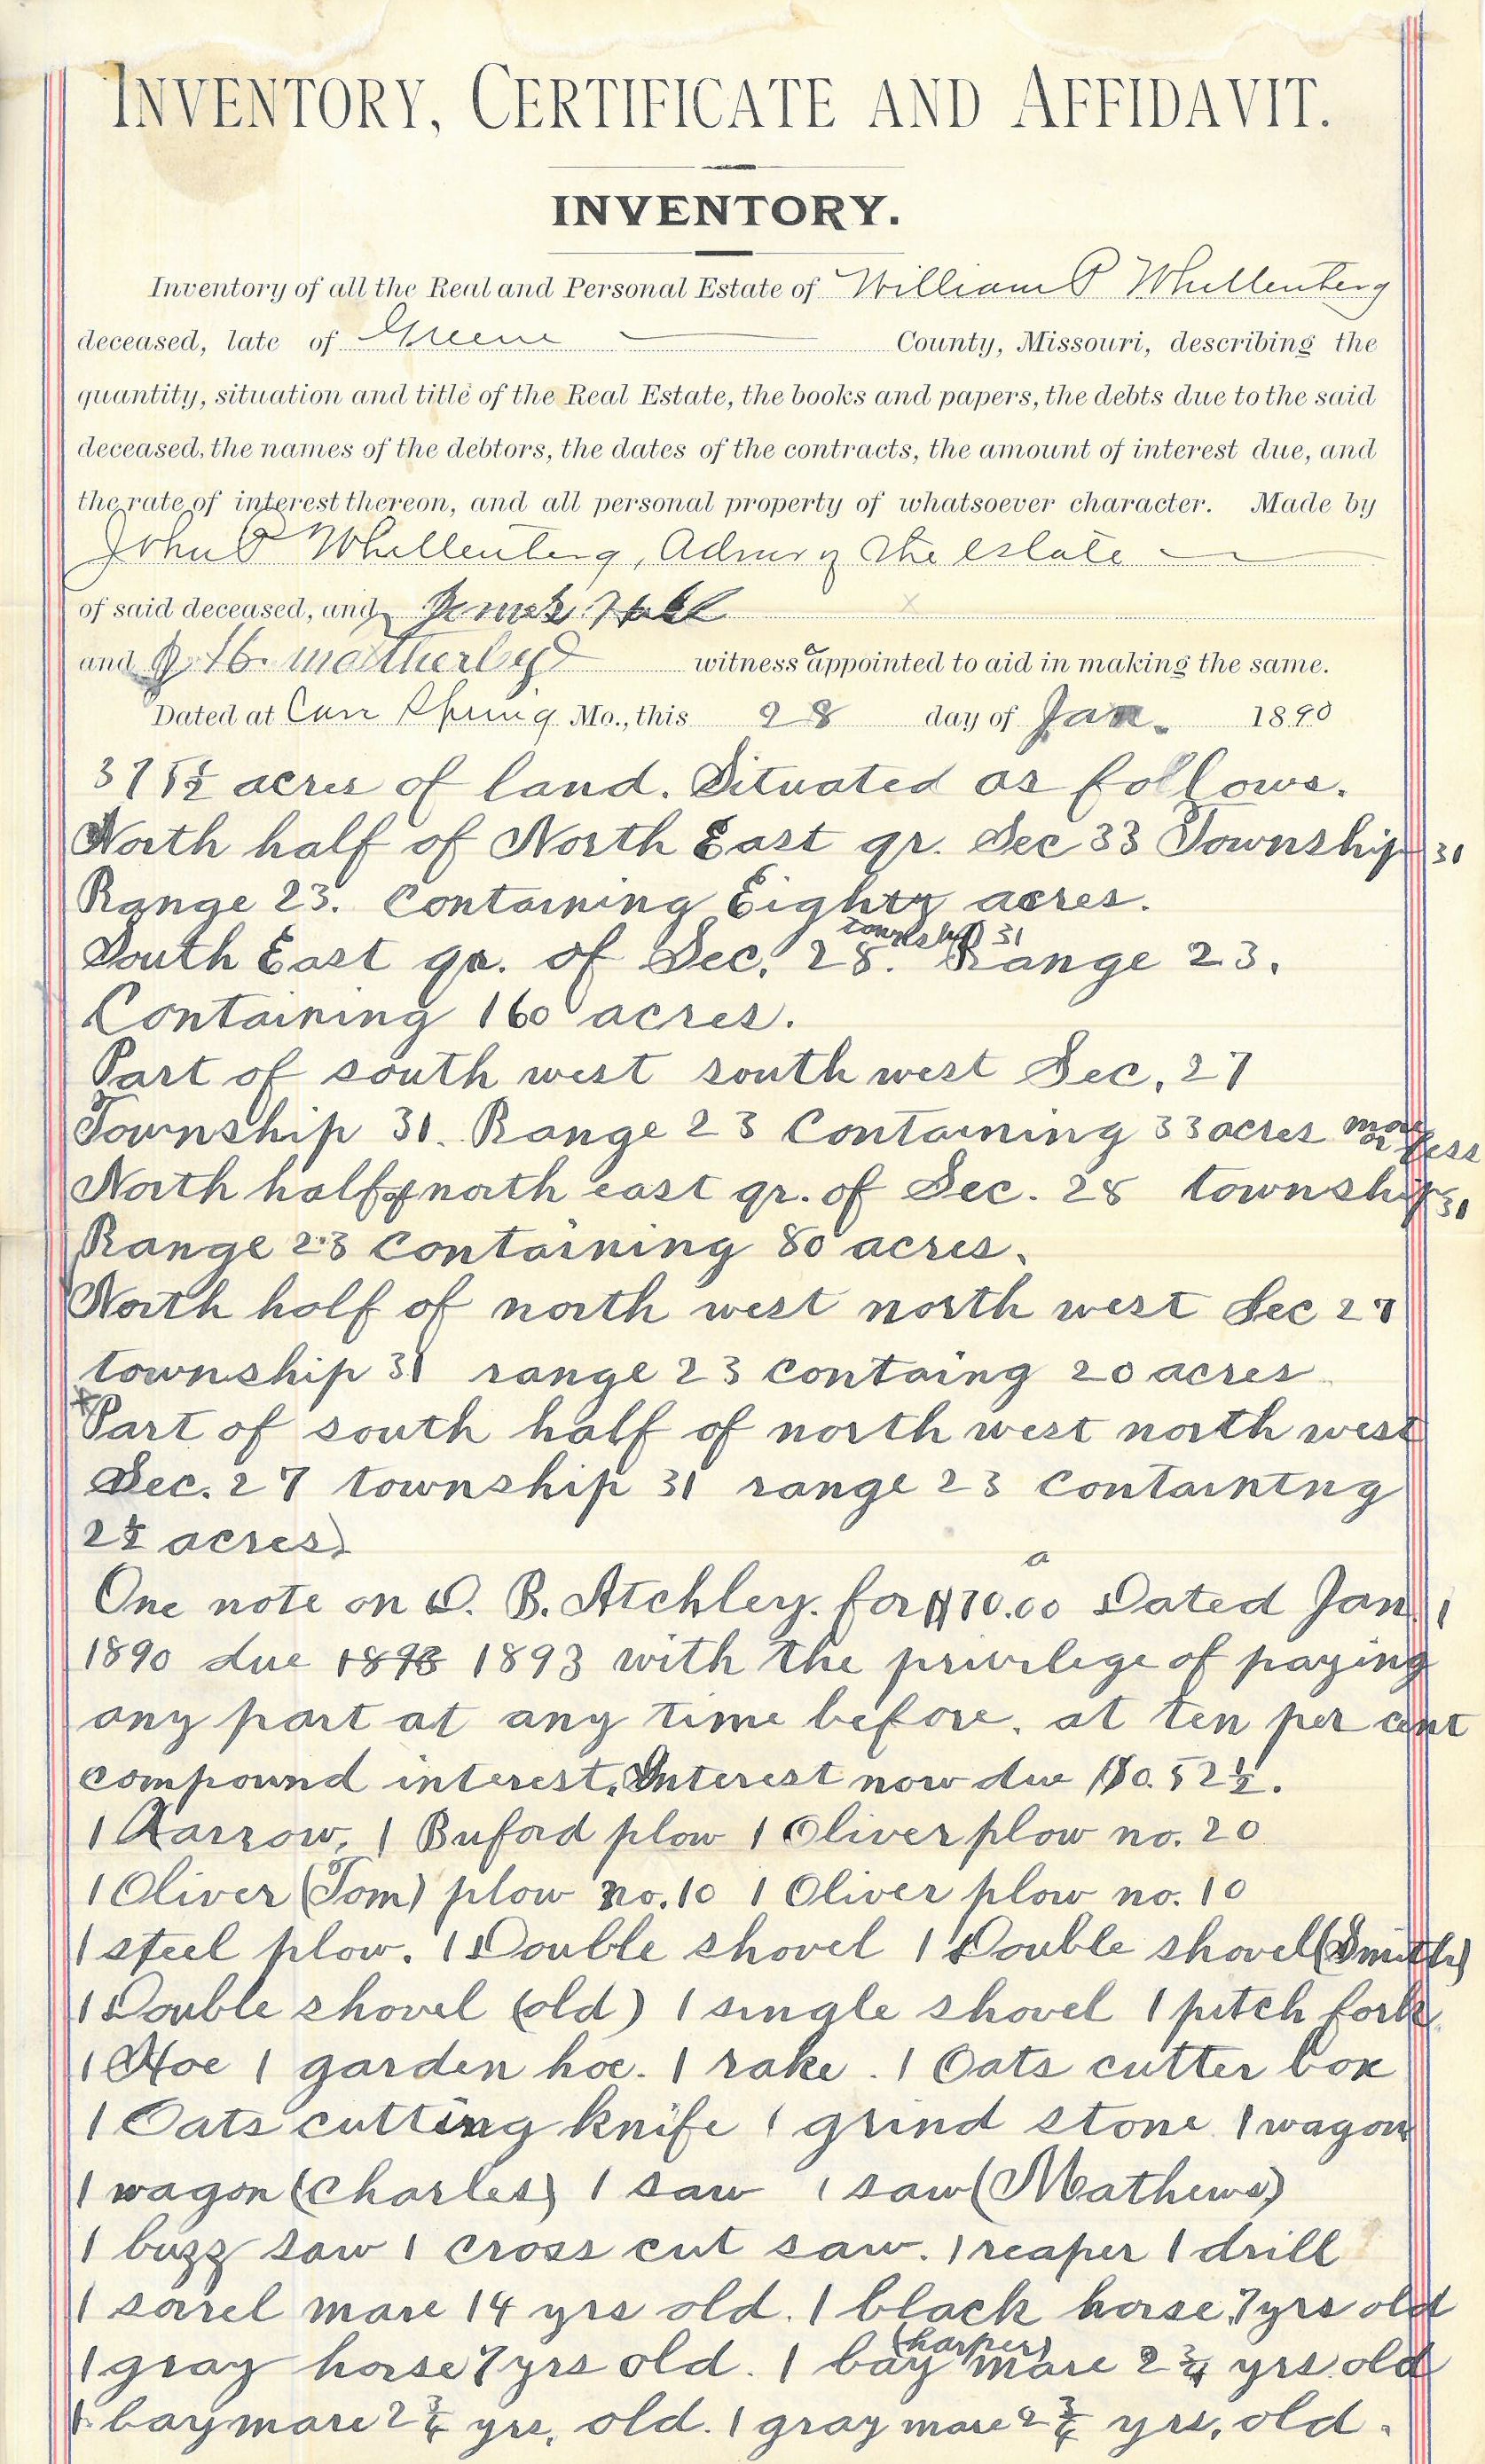 INVENTORY, CERTIFICATE AND AFFIDAVIT.
INVENTORY.
Inventory of all the Real and Personal Estate of William P Whillenberg
deceased, late of Greene County, Missouri, describing the
quantity, situation and title of the Real Estate, the books and papers, the debts due to the said
deceased, the names of the debtors, the dates of the contracts, the amount of interest due, and
the rate of interest thereon, and all personal property of whatsoever character. Made by
John P Whillenberg, Admr of the estate
of said deceased, and James Hall
and J H. Matherly witness appointed to aid in making the same.
Dated at Cave Spring Mo., this 28 day of Jan. 1890
375½ acres of land. Situated as follows.
North half of North East qr. Sec 33 Township 31
Range 23. Containing Eighty acres.
South East qr. of Sec. 28. township 31 Range 23.
Containing 160 acres.
Part of south west south west Sec. 27
Township 31. Range 23 Containing 33 acres more or less
North half of north east qr. of Sec. 28 township 31
Range 23 containing 80 acres.
North half of north west north west Sec 27
township 31 range 23 containg 20 acres
*Part of south half of north west north west
Sec. 27 township 31 range 23 containing
2½ acres)
One note on D. B. Atchley. for $70.00 Dated Jan. 1
1890 due 1893 1893 with the privilege of paying
any part at any time before. at ten per cent
compound interest. Interest now due $0.52½.
1 Harrow, 1 Buford plow 1 Oliver plow no. 20
1 Oliver (Tom) plow no. 10 1 Oliver plow no. 10
1 steel plow. 1 Double shovel 1 Double shovel (Smith)
1 Double shovel (old) 1 single shovel 1 pitch fork
1 Hoe 1 garden hoe. 1 rake. 1 Oats cutter box
1 Oats cutting knife 1 grind stone 1 wagon
1 wagon (Charles) 1 saw 1 saw (Mathews)
1 buzz saw 1 cross cut saw. 1 reaper 1 drill
1 sorrel mare 14 yrs old. 1 black horse. 7 yrs old
1 gray horse 7 yrs old. 1 bay (harper) mare 2¾ yrs old
1 bay mare 2¾ yrs, old. 1 gray mare 2¾ yrs, old.